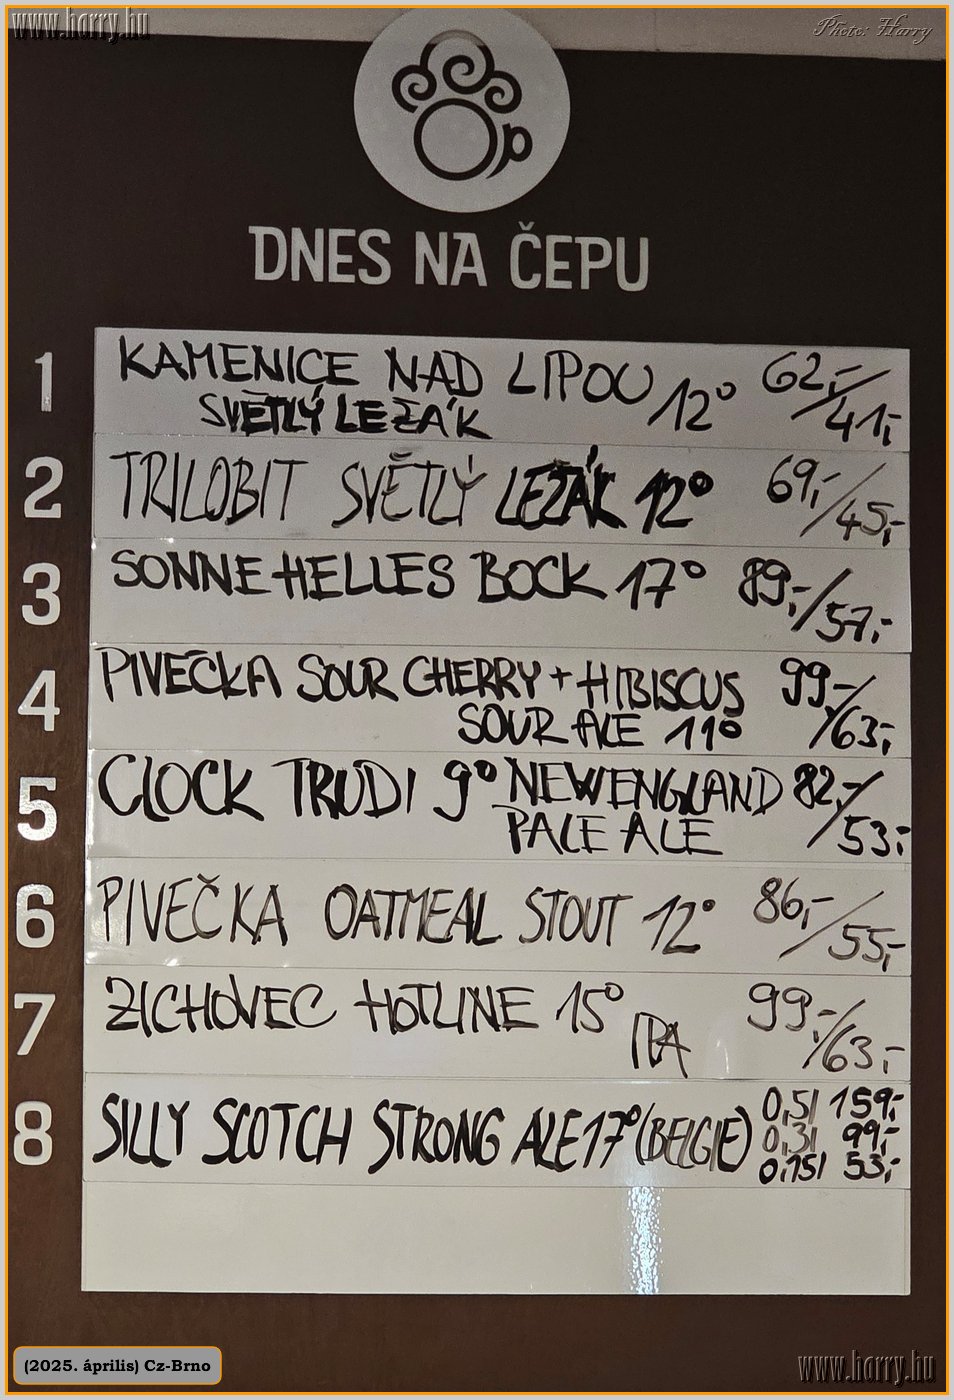 www.horry.hu
Photo: Harry
DNES NA ČEPU
1 KAMENICE NAD LIPOU 12° 62,-/41,-
SVĚTLÝ LEŽÁK
2 TRILOBIT SVĚTLÝ LEŽÁK 12° 69,-/45,-
3 SONNE HELLES BOCK 17° 89,-/57,-
4 PIVEČKA SOUR CHERRY + HIBISCUS 99,-/63,-
SOUR ALE 11°
5 CLOCK TRUDI 9° NEW ENGLAND 82,-/53,-
PALE ALE
6 PIVEČKA OATMEAL STOUT 12° 86,-/55,-
7 ZICHOVEC HOTLINE 15° 99,-/63,-
IPA
8 SILLY SCOTCH STRONG ALE 17° (BELGIE) 0,5l 159,-
0,3l 99,-
0,15l 53,-
(2025. április) Cz-Brno
www.horry.hu